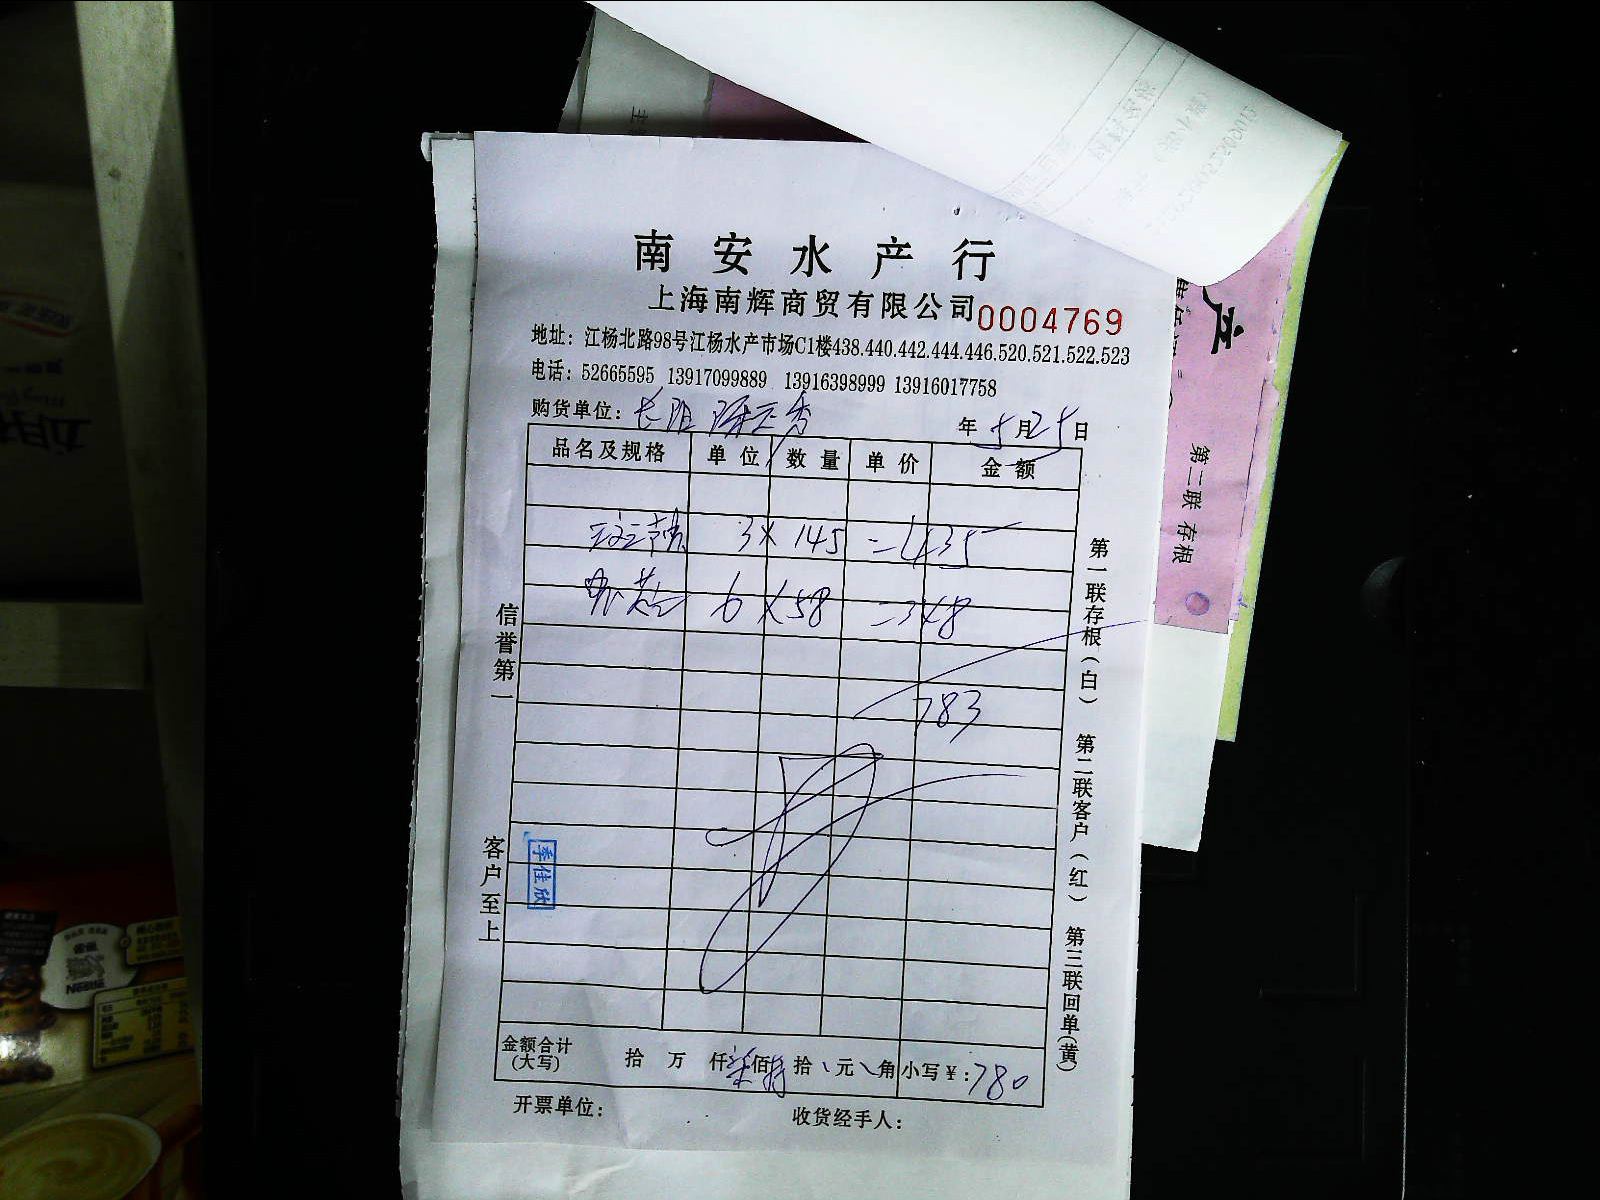 南安水产行
上海南辉商贸有限公司 0004769
地址：江杨北路98号江杨水产市场C1楼438.440.442.444.446.520.521.522.523
电话：52665595 13917099889 13916398999 13916017758
购货单位：长阳 秀 年5月25日
品名及规格 单位 数量 单价 金额
3×145=435
6×58=348
783
信誉第一
客户至上
季佳欣
第一联存根(白) 第二联客户(红) 第三联回单(黄)
金额合计(大写) 拾 万 仟柒佰捌拾 元 角 小写￥:780
开票单位: 收货经手人:
产
第二联 存根
Nestle